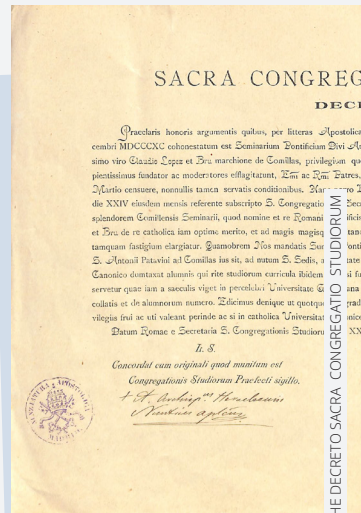 SACRA CONGREG
DECR
Praeclaris honoris argumentis quibus, per litteras Apostolica
cembri MDCCCXC cohonestatum est Seminarium Pontificium Divi An
simo viro Claudio Lopez et Bru marchione de Comillas, privilegium que
pientissimus fundator ac moderatores efflagitarunt, Emi ac Rmi Patres,
Martio censuere, nonnullis tamen servatis conditionibus.
die XXIV eiusdem mensis referente subscripto S. Congregatio Secre
splendorem Comillensis Seminarii, quod nomine et re Romani
et Bru de re catholica iam optime merito, et ad magis magisq
tamquam fastigium elargiatur. Quamobrem Nos mandatis
S. Antonii Patavini ad Comillas ius sit, ad nutum S. Sedis, a
Canonico dumtaxat alumnis qui rite studiorum curricula ibidem
servetur quae iam a saeculis viget in percelebri Universitate
collatis et de alumnorum numero. Edicimus denique ut quotquot
vilegiis frui ac uti valeant perinde ac si in catholica Universitat
Datum Romae e Secretaria S. Congregationis Studioru XX
L. S.
Concordat cum originali quod munitum est
Congregationis Studiorum Praefecti sigillo.
Nuntius aplicus
HE DECRETO SACRA CONGREGATIO STUDIORUM